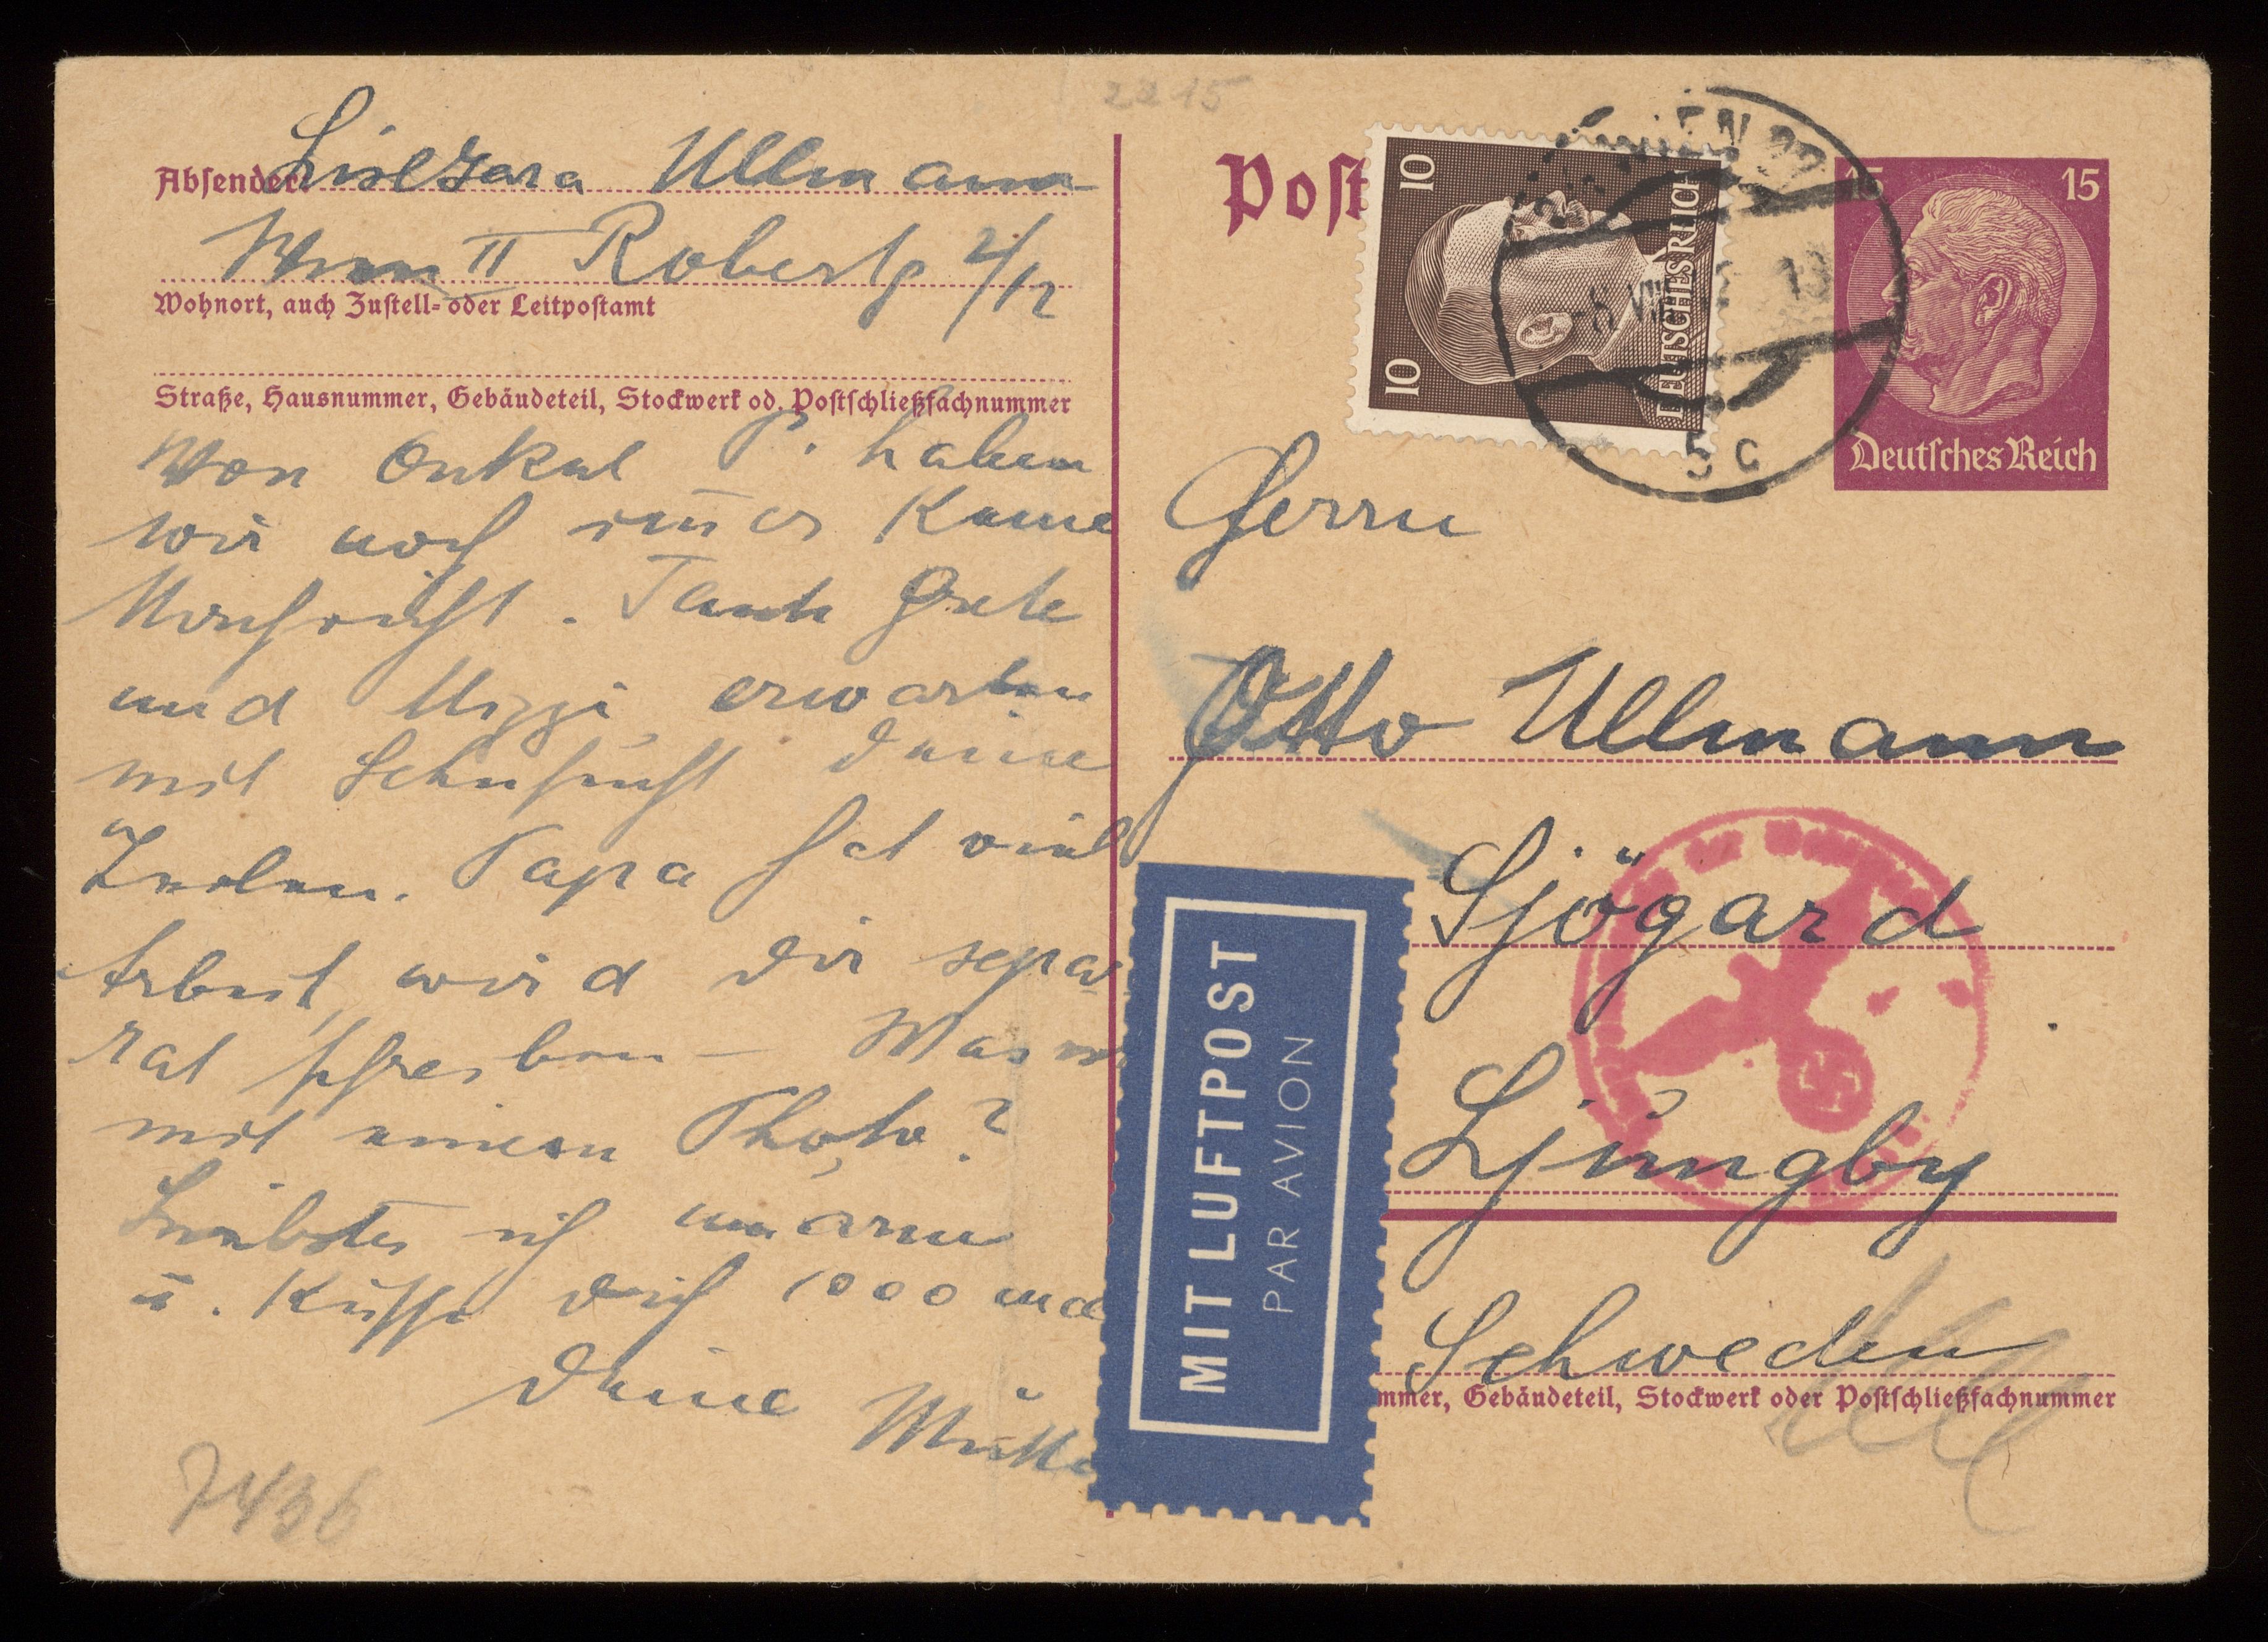 2215
Absender:
Lise Sara Ullmann
Wien II Robertg 2/12
Wohnort, auch Zustell- oder Leitpostamt
Straße, Hausnummer, Gebäudeteil, Stockwerk od. Postschließfachnummer
Von Onkel P. haben
wir noch im̄er keine
Nachricht. Tante Grete
und Mizzi erwarten
mit Sehnsucht Deine
Zeilen. Papa hat viel
Arbeit, wird Dir sepa-
rat schreiben – Was
mit einem Photo?
Liebster ich umarme
u. küsse Dich 1000 mal
Deine Mutti
7436
Post
10 10
DEUTSCHES REICH
15 15
Deutsches Reich
5 c
Herrn
Otto Ullmann
Sjögard
Ljungby
Schweden
mmer, Gebäudeteil, Stockwerk oder Postschließfachnummer
MIT LUFTPOST
PAR AVION